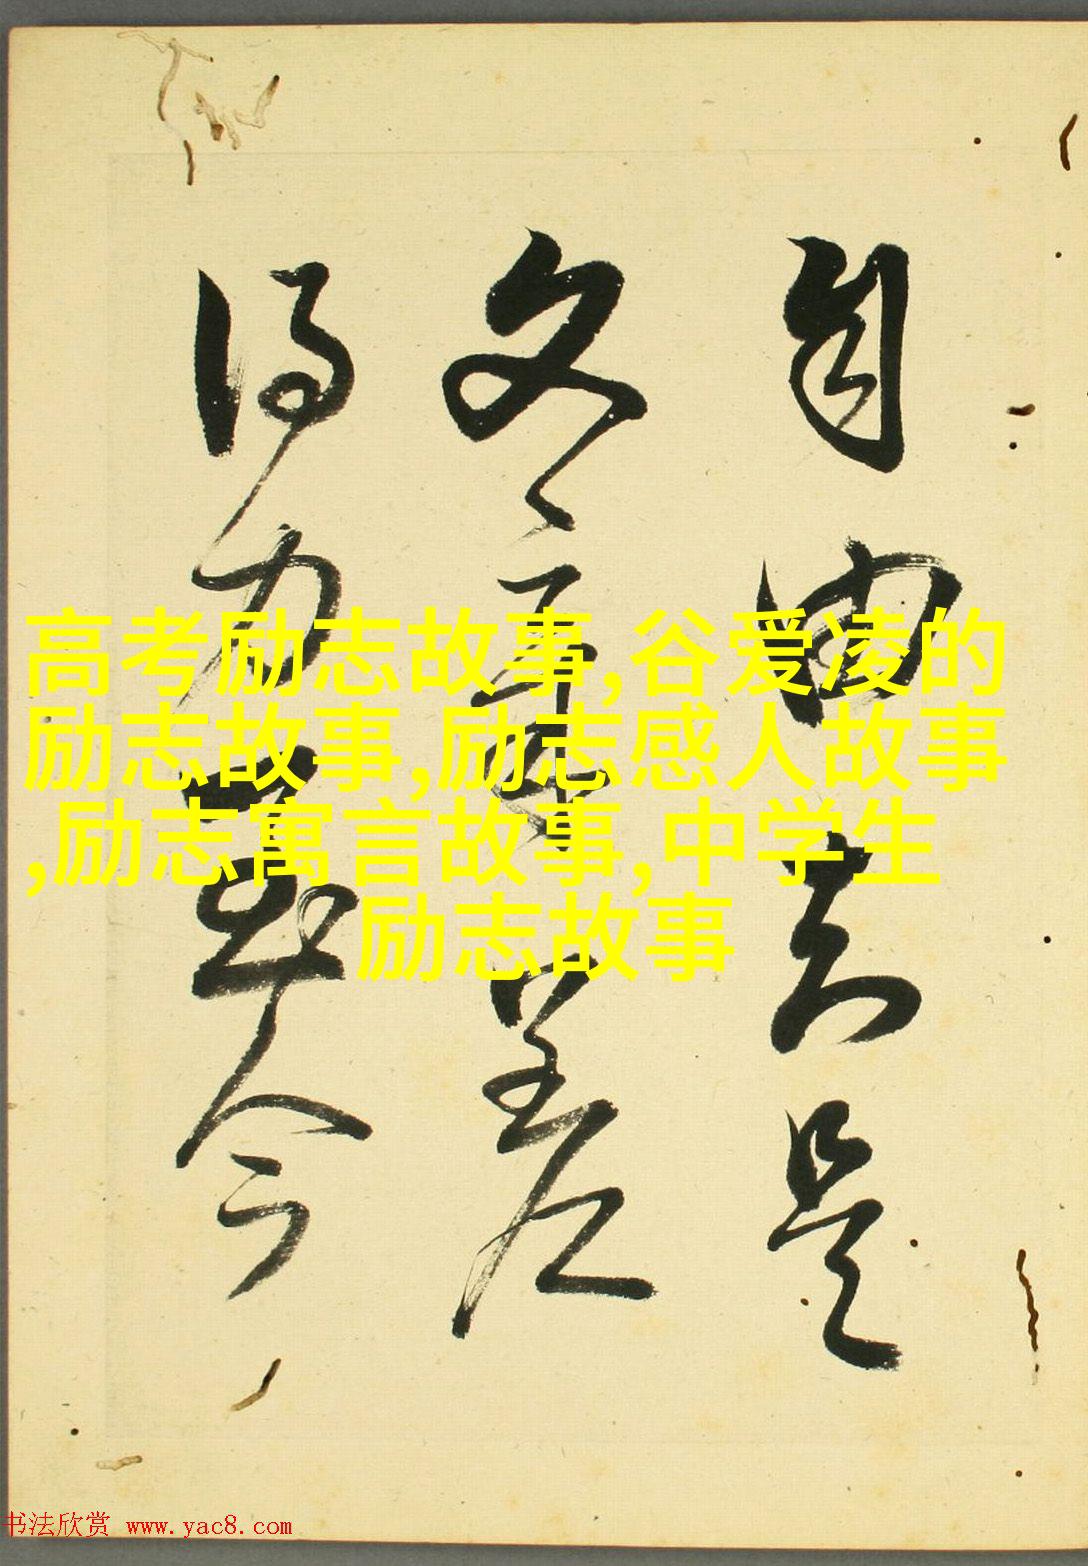 高考励志故事,谷爱凌的
励志故事,励志感人故事
,励志寓言故事,中学生
励志故事
自由是
差
得力今
书法欣赏 www.yac8.com